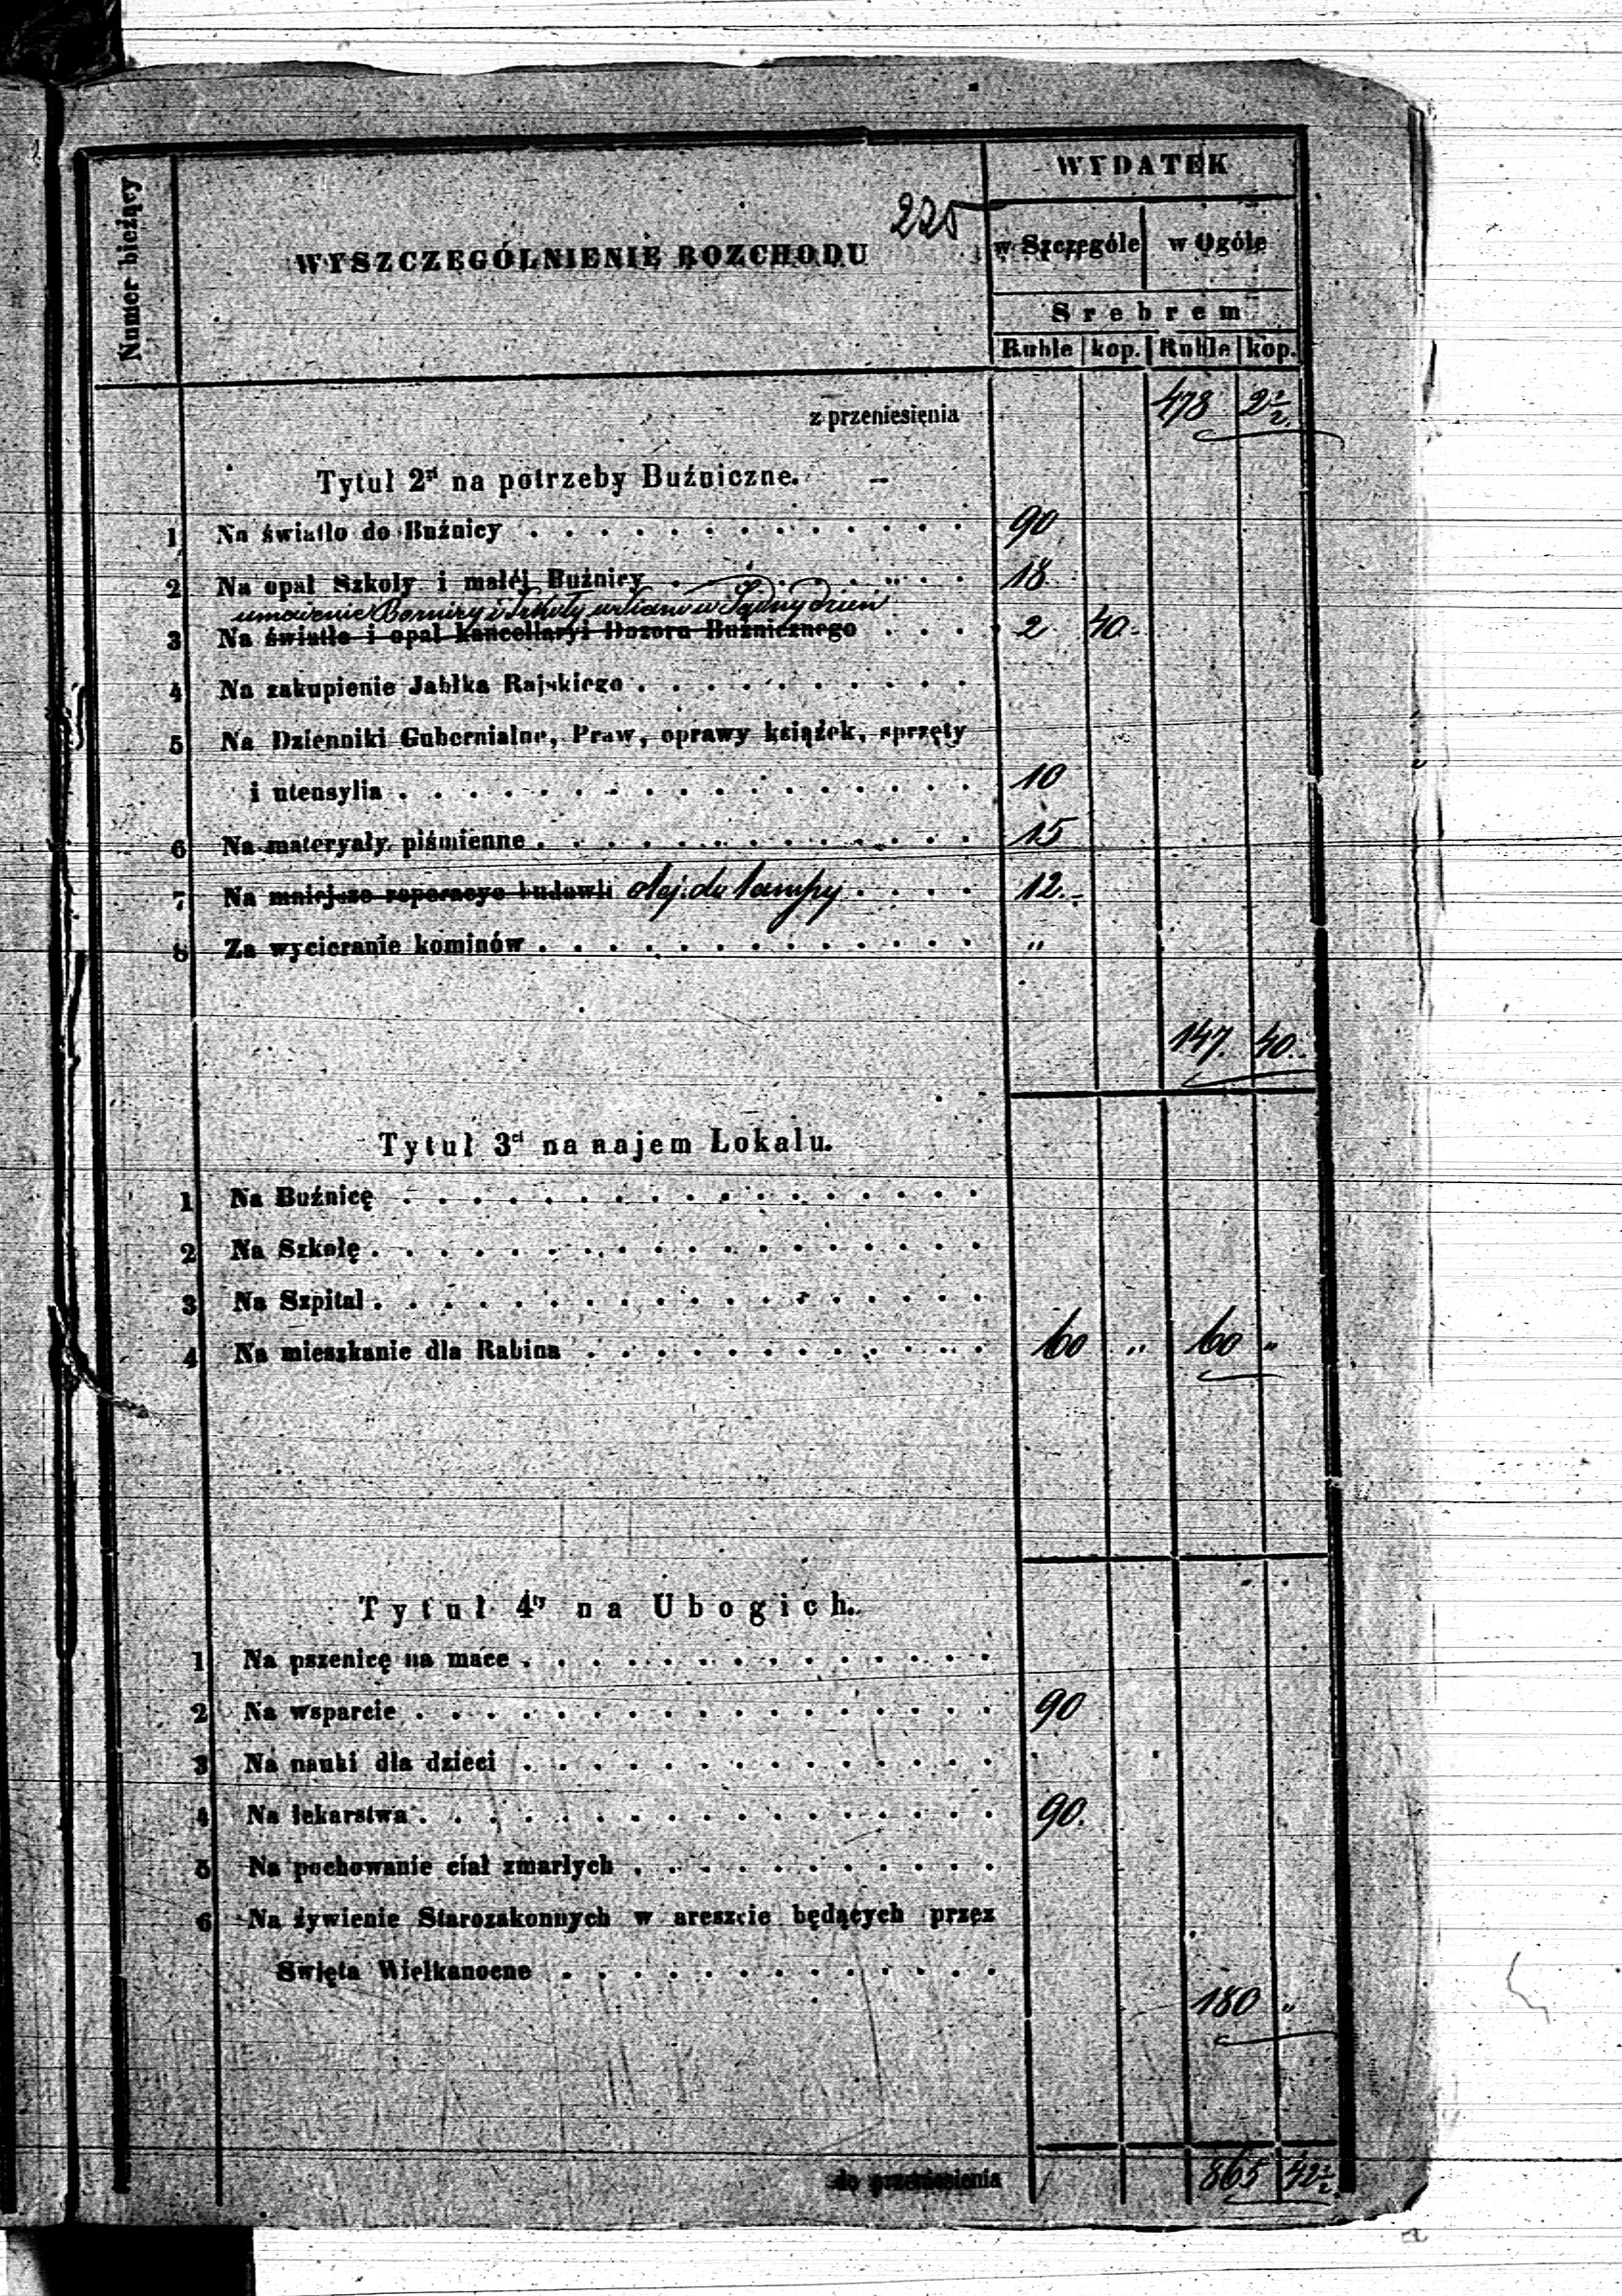 225
Numer bieżący
WYSZCZEGÓLNIENIE ROZCHODU
WYDATEK
w Szczególe w Ogóle
Srebrem
Ruble kop. Ruble kop.
z przeniesienia 478 2 1/2
Tytuł 2gi na potrzeby Buźniczne. –
1 Na światło do Buźnicy . . . . . . . . . . . . . 90
2 Na opał Szkoły i małéj Buźnicy . . . . . . . . 18
i Szkoły w Sądny dzień
3 Na światło i opał kancellaryi Dozoru Buźnicznego . . . 2 40
4 Na zakupienie Jabłka Rajskiego . . . . . . . . . .
5 Na Dzienniki Gubernialne, Praw, oprawy książek, sprzęty
i utensylia . . . . . . . . . . . . . . . . . 10
6 Na materyały piśmienne . . . . . . . . . . . . . 15
7 Na mniejsze reperacye budowli olej do lampy . . . . 12
8 Za wycieranie kominów . . . . . . . . . . . . . "
147 40
Tytuł 3ci na najem Lokalu.
1 Na Buźnicę . . . . . . . . . . . . . . . . .
2 Na Szkołę . . . . . . . . . . . . . . . . . .
3 Na Szpital . . . . . . . . . . . . . . . . . .
4 Na mieszkanie dla Rabina . . . . . . . . . . . . 60 " 60 "
Tytuł 4ty na Ubogich.
1 Na pszenicę na mace . . . . . . . . . . . . . .
2 Na wsparcie . . . . . . . . . . . . . . . . . 90
3 Na nauki dla dzieci . . . . . . . . . . . . . .
4 Na lekarstwa . . . . . . . . . . . . . . . . . 90
5 Na pochowanie ciał zmarłych . . . . . . . . . . .
6 Na żywienie Starozakonnych w areszcie będących przez
Święta Wielkanocne . . . . . . . . . . . . .
180 "
do przeniesienia 865 42 1/2